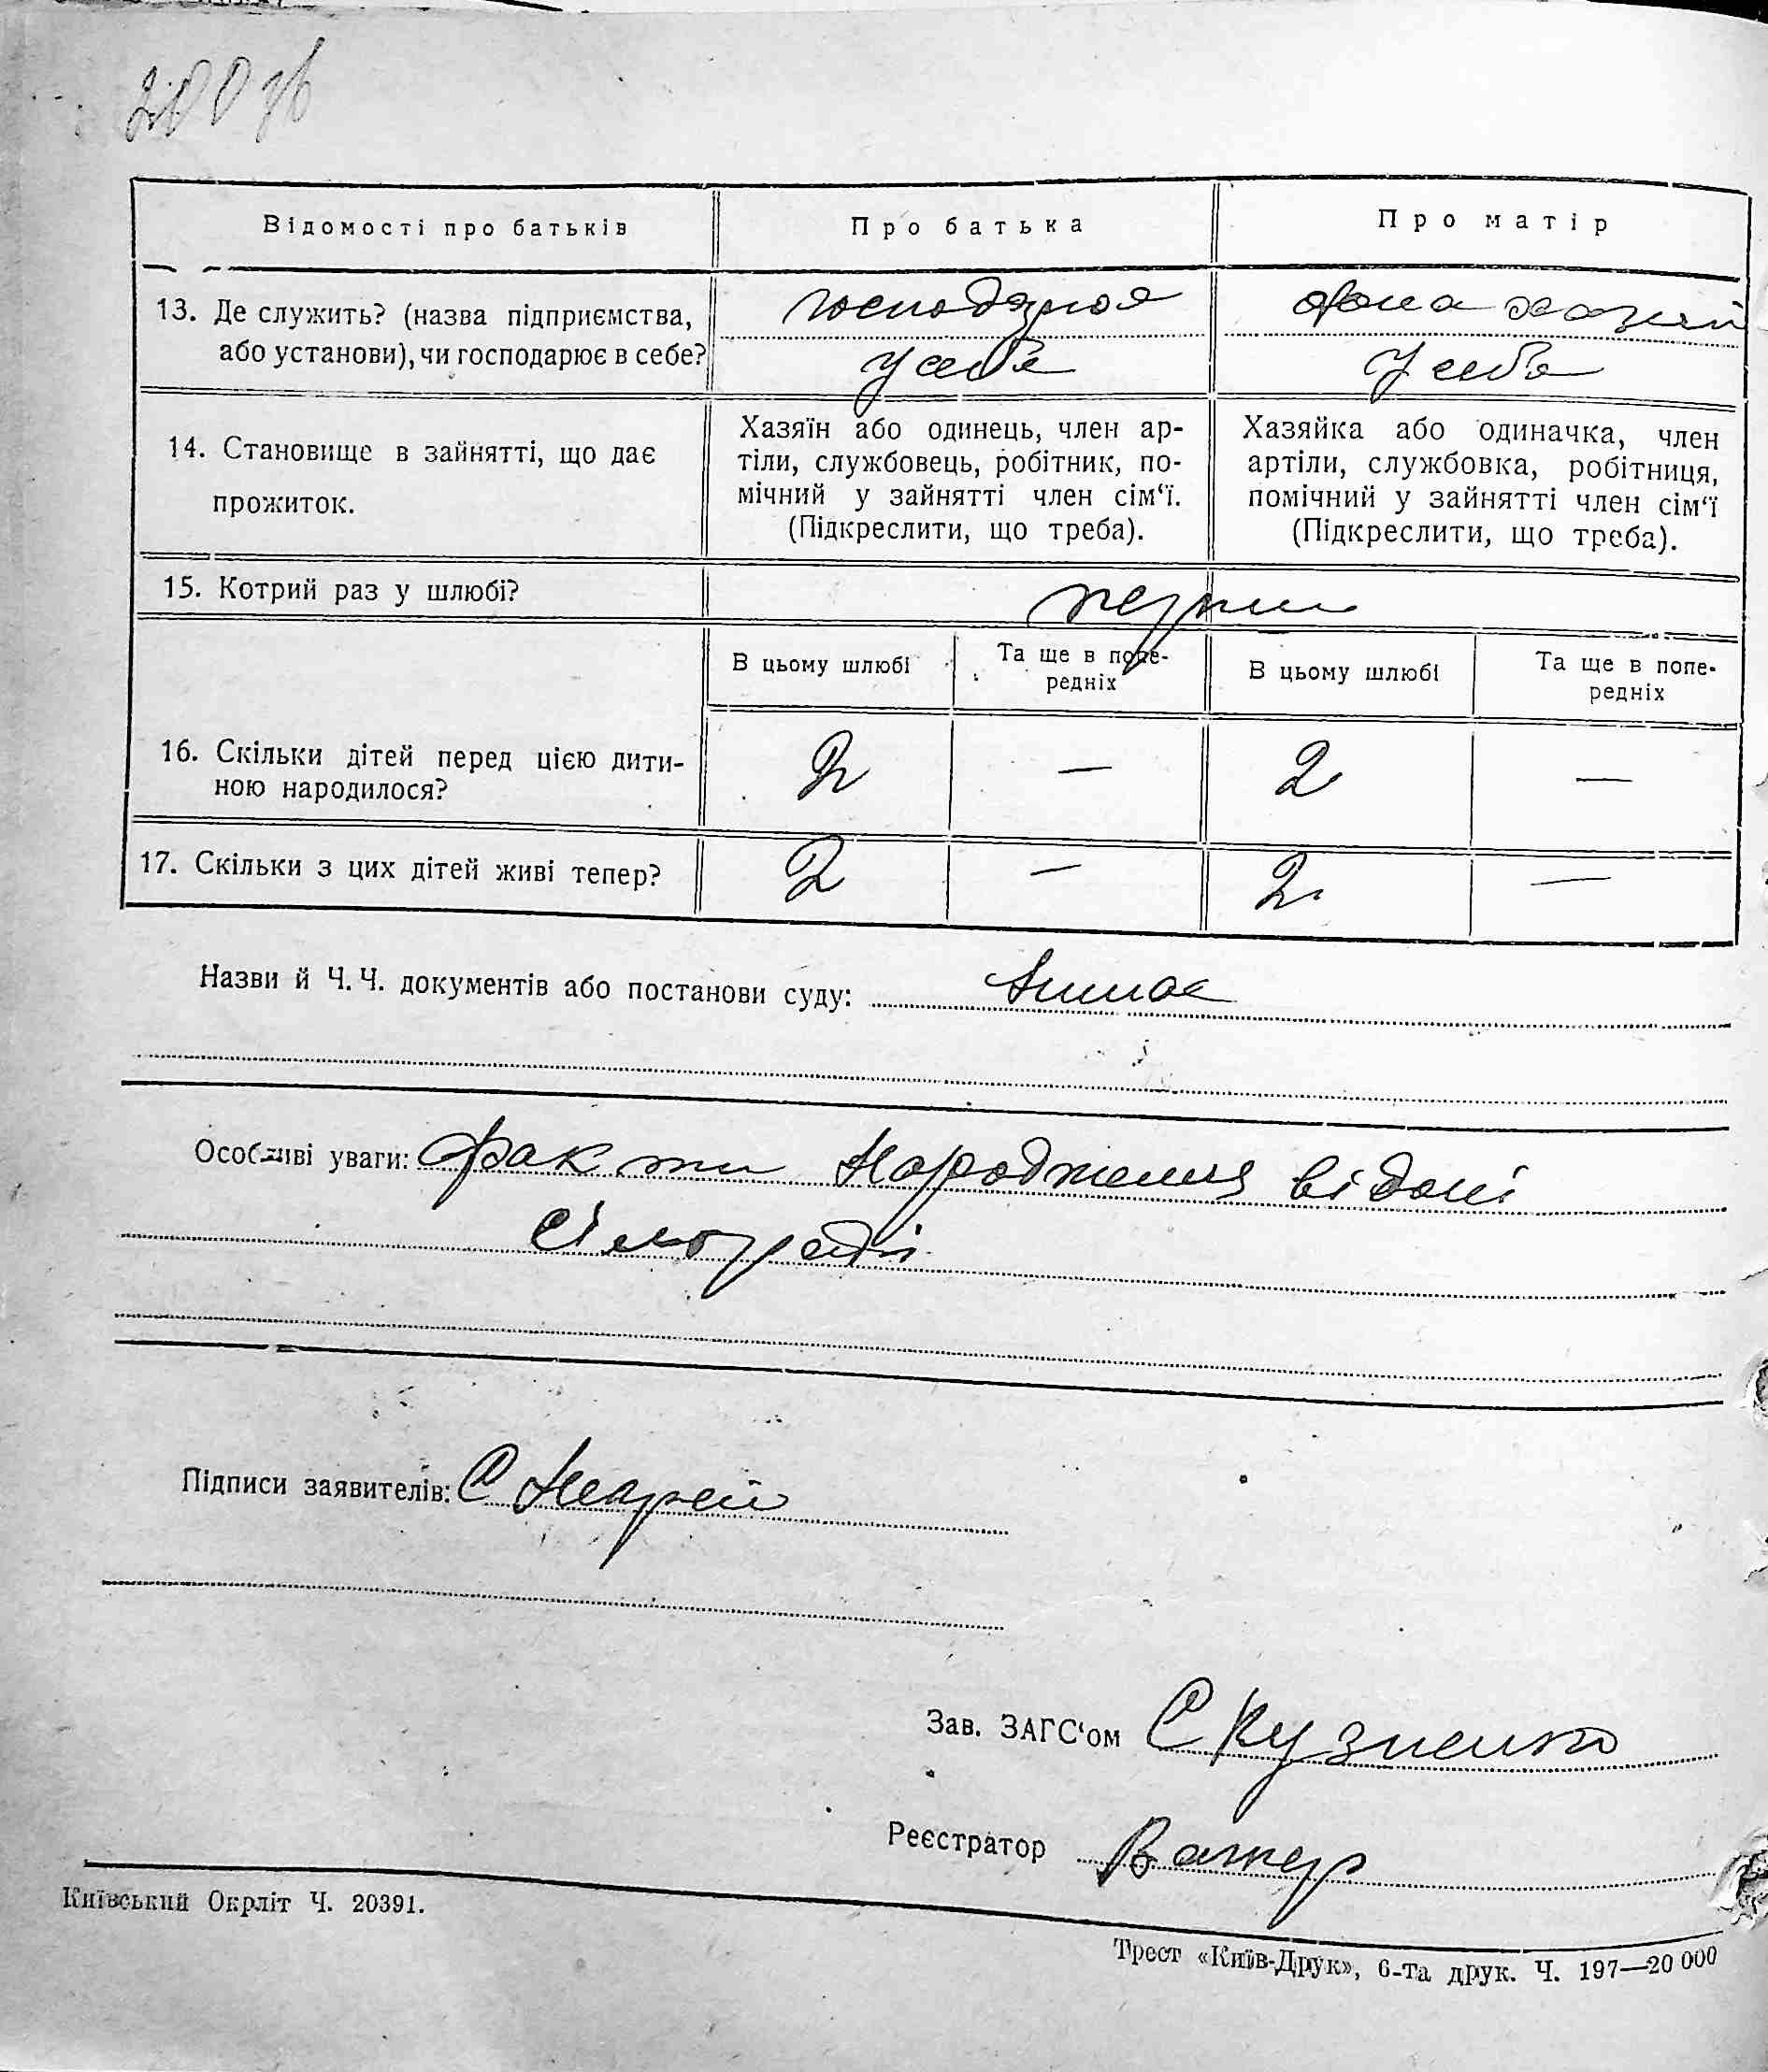 200 зв
Відомості про батьків
Про батька
Про матір
13. Де служить? (назва підприємства,
або установи), чи господарює в себе?
господарює
у себе
хазяй
у себе
14. Становище в зайнятті, що дає
прожиток.
Хазяїн або одинець, член ар-
тіли, службовець, робітник, по-
мічний у зайнятті член сім‘ї.
(Підкреслити, що треба).
Хазяйка або одиначка, член
артіли, службовка, робітниця,
помічний у зайнятті член сім‘ї
(Підкреслити, що треба).
15. Котрий раз у шлюбі?
перший
В цьому шлюбі
Та ще в попе-
редніх
В цьому шлюбі
Та ще в попе-
редніх
16. Скільки дітей перед цією дити-
ною народилося?
2 — 2 —
17. Скільки з цих дітей живі тепер?
2 — 2 —
Назви й Ч. Ч. документів або постанови суду:
Особливі уваги: факти народження відомі
сільраді
Підписи заявителів: С
Зав. ЗАГС‘ом С Кузненко
Реєстратор
Київський Окрліт Ч. 20391.
Трест «Київ-Друк», 6-та друк. Ч. 197—20 000